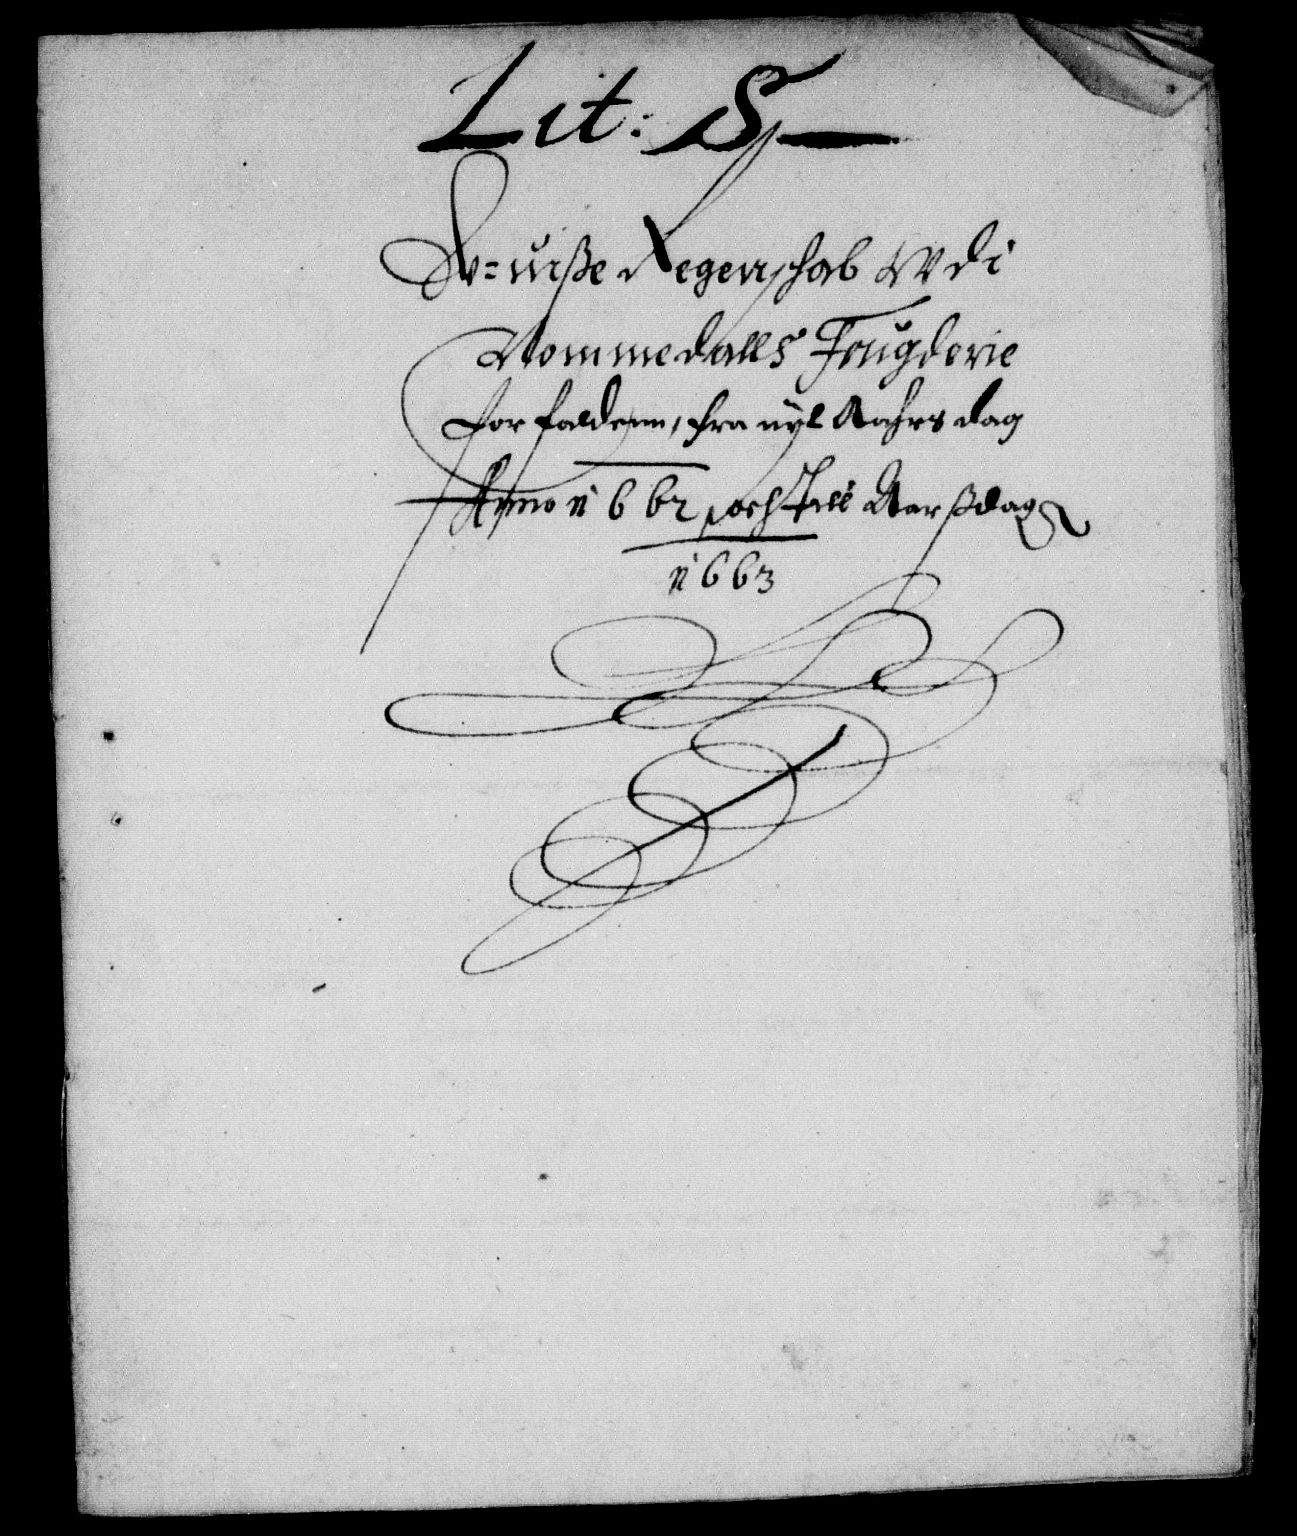 Lit: S
U=uiße Regenschab Wdi
Nommedalls Fougderie
for falden, fra nyt Aahrs dag
Anno 1662, och till Aarßdag
1663